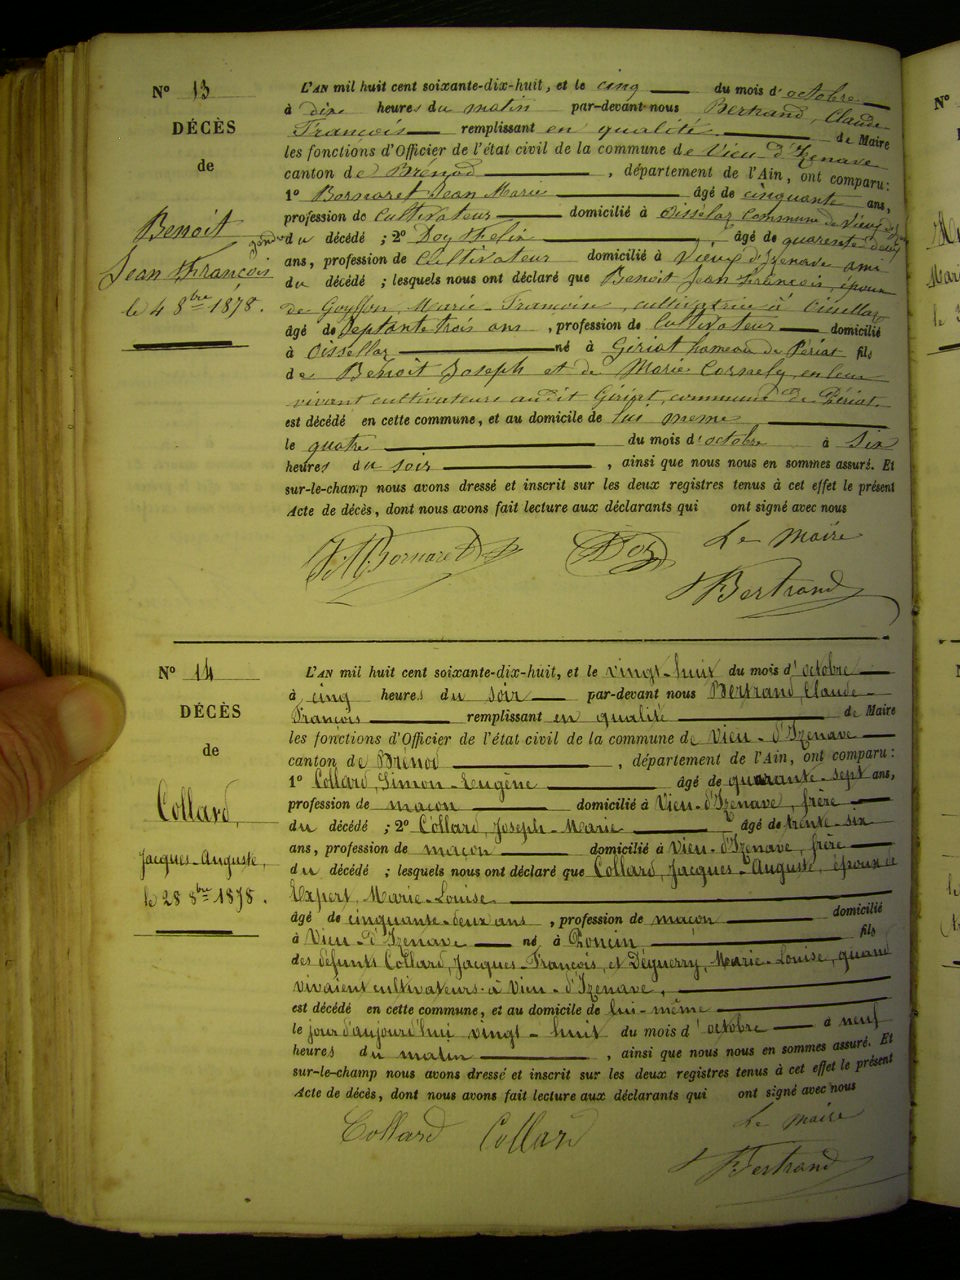 N° 13
DÉCÈS
de
Benoit
Jean François
le 4 8bre 1878.
L'AN mil huit cent soixante-dix-huit, et le cinq du mois d'octobre
à dix heures du matin par-devant nous Bertrand, Claude
François remplissant en qualité de Maire
les fonctions d'Officier de l'état civil de la commune de Vieu-d'Izenave
canton de Brénod, département de l'Ain, ont comparu:
1° Bornaret Jean Marie âgé de cinquante ans,
profession de cultivateur domicilié à Oisselaz commune de Vieu d'Iz
gendre du décédé ; 2° Doy Félix, âgé de quarente deux
ans, profession de cultivateur domicilié à Vieux d'Izenave ami
du décédé ; lesquels nous ont déclaré que Benoit Jean François, époux
de Goyffon, Marie-Françoise, cultivatrice à Oisellaz
âgé de septante trois ans, profession de cultivateur domicilié
à Oissellaz né à Giriat hameau de Périat fils
de Benoit Joseph et de Marie Cornely, en leur
vivant cultivateurs audit Giriat, commune de Périat
est décédé en cette commune, et au domicile de lui meme
le quatre du mois d'octobre à six
heures du soir, ainsi que nous nous en sommes assuré. Et
sur-le-champ nous avons dressé et inscrit sur les deux registres tenus à cet effet le présent
Acte de décès, dont nous avons fait lecture aux déclarants qui ont signé avec nous
Le Maire
J M Bornaret Doy
Bertrand
N° 14
DÉCÈS
de
Collard,
Jacques-Auguste,
le 28 8bre 1878.
L'AN mil huit cent soixante-dix-huit, et le vingt-huit du mois d'octobre
à cinq heures du soir par-devant nous Bertrand, Claude-
François remplissant en qualité de Maire
les fonctions d'Officier de l'état civil de la commune de Vieu-d'Izenave
canton de Brénod, département de l'Ain, ont comparu:
1° Collard, Simon-Eugène âgé de quarante-sept ans,
profession de maçon domicilié à Vieu-d'Izenave, frère
du décédé ; 2° Collard, Joseph-Marie âgé de trente-six
ans, profession de maçon domicilié à Vieu-d'Izenave, frère
du décédé ; lesquels nous ont déclaré que Collard, Jacques-Auguste, époux de
Expert, Marie-Louise
âgé de cinquante-deux ans, profession de maçon domicilié
à Vieu-d'Izenave né à Poncin fils
des défunts Collard, Jacques-François, et Déguerry, Marie-Louise, quand
vivaient cultivateurs à Vieu-d'Izenave,
est décédé en cette commune, et au domicile de lui-même
le jour d'aujourd'hui vingt-huit du mois d'octobre à neuf
heures du matin, ainsi que nous nous en sommes assuré. Et
sur-le-champ nous avons dressé et inscrit sur les deux registres tenus à cet effet le présent
Acte de décès, dont nous avons fait lecture aux déclarants qui ont signé avec nous
Le maire
Collard Collard
Bertrand